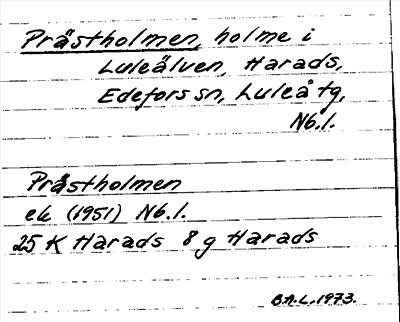 Prästholmen, holme i
Luleälven, Harads,
Edefors sn, Luleå tg,
Nb.l.
Prästholmen
ek (1951) Nb.l.
25 K Harads 8 g Harads
B.A.L. 1973.